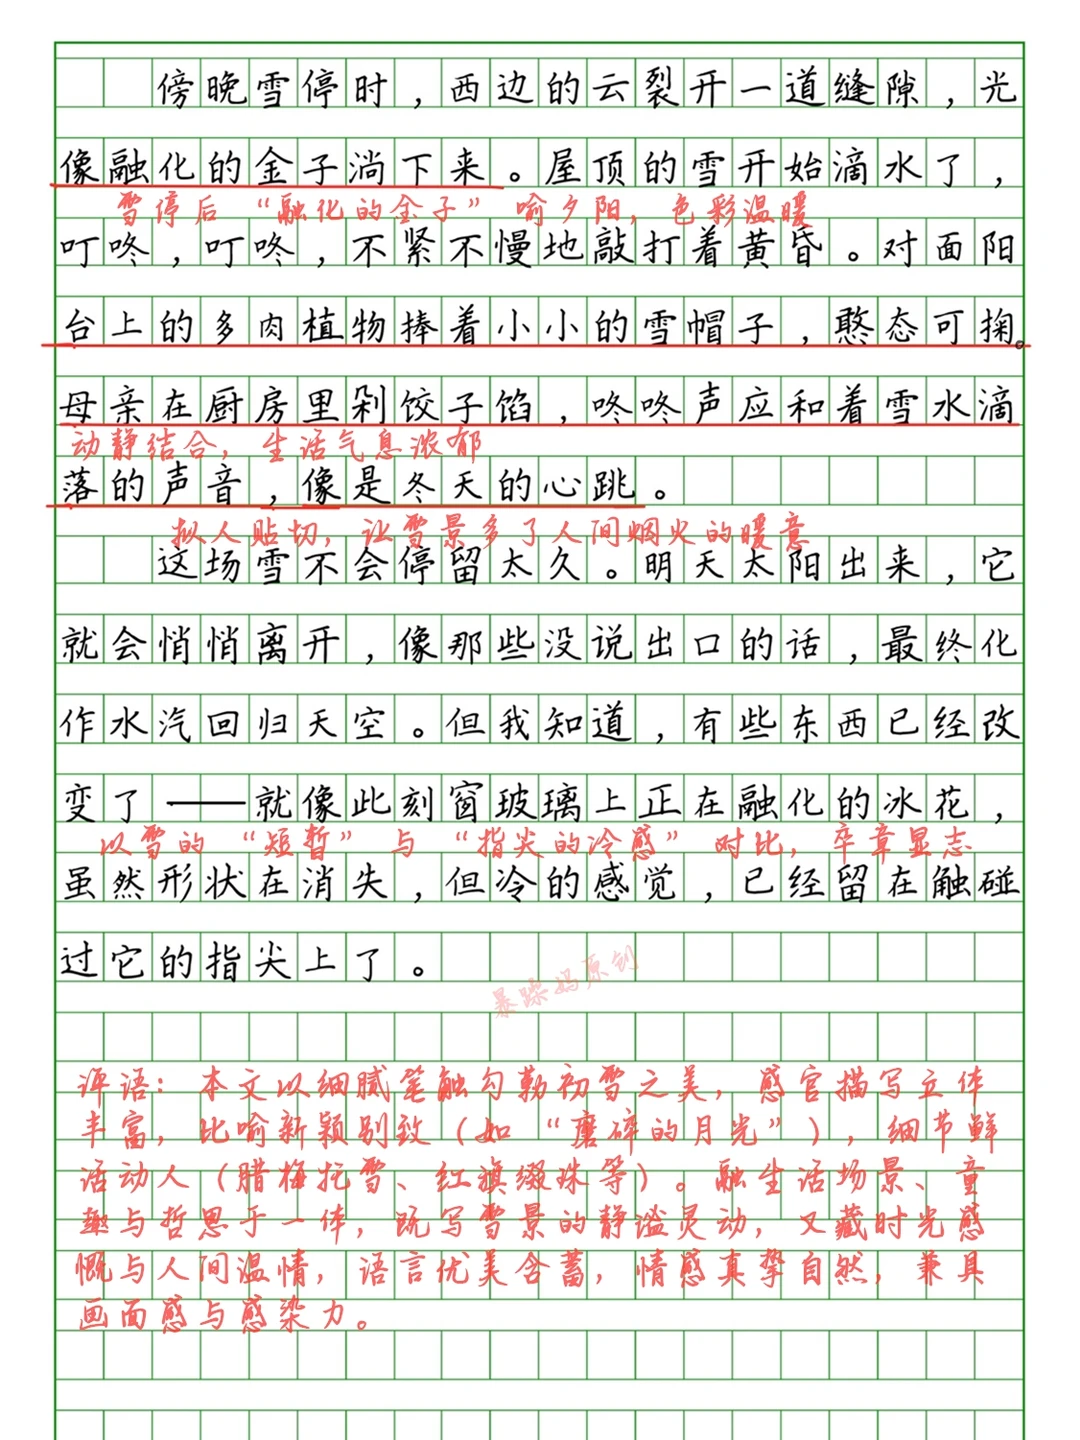 傍晚雪停时，西边的云裂开一道缝隙，光
像融化的金子淌下来。屋顶的雪开始滴水了，
雪停后“融化的金子”喻夕阳，色彩温暖
叮咚，叮咚，不紧不慢地敲打着黄昏。对面阳
台上的多肉植物捧着小小的雪帽子，憨态可掬。
母亲在厨房里剁饺子馅，咚咚声应和着雪水滴
动静结合，生活气息浓郁
落的声音，像是冬天的心跳。
拟人贴切，让雪景多了人间烟火的暖意
这场雪不会停留太久。明天太阳出来，它
就会悄悄离开，像那些没说出口的话，最终化
作水汽回归天空。但我知道，有些东西已经改
变了——就像此刻窗玻璃上正在融化的冰花，
以雪的“短暂”与“指尖的冷感”对比，卒章显志
虽然形状在消失，但冷的感觉，已经留在触碰
过它的指尖上了。
暴躁妈原创
评语：本文以细腻笔触勾勒初雪之美，感官描写立体
丰富，比喻新颖别致（如“磨碎的月光”），细节鲜
活动人（腊梅托雪、红旗缀珠等）。融生活场景、童
趣与哲思于一体，既写雪景的静谧灵动，又藏时光感
慨与人间温情，语言优美含蓄，情感真挚自然，兼具
画面感与感染力。